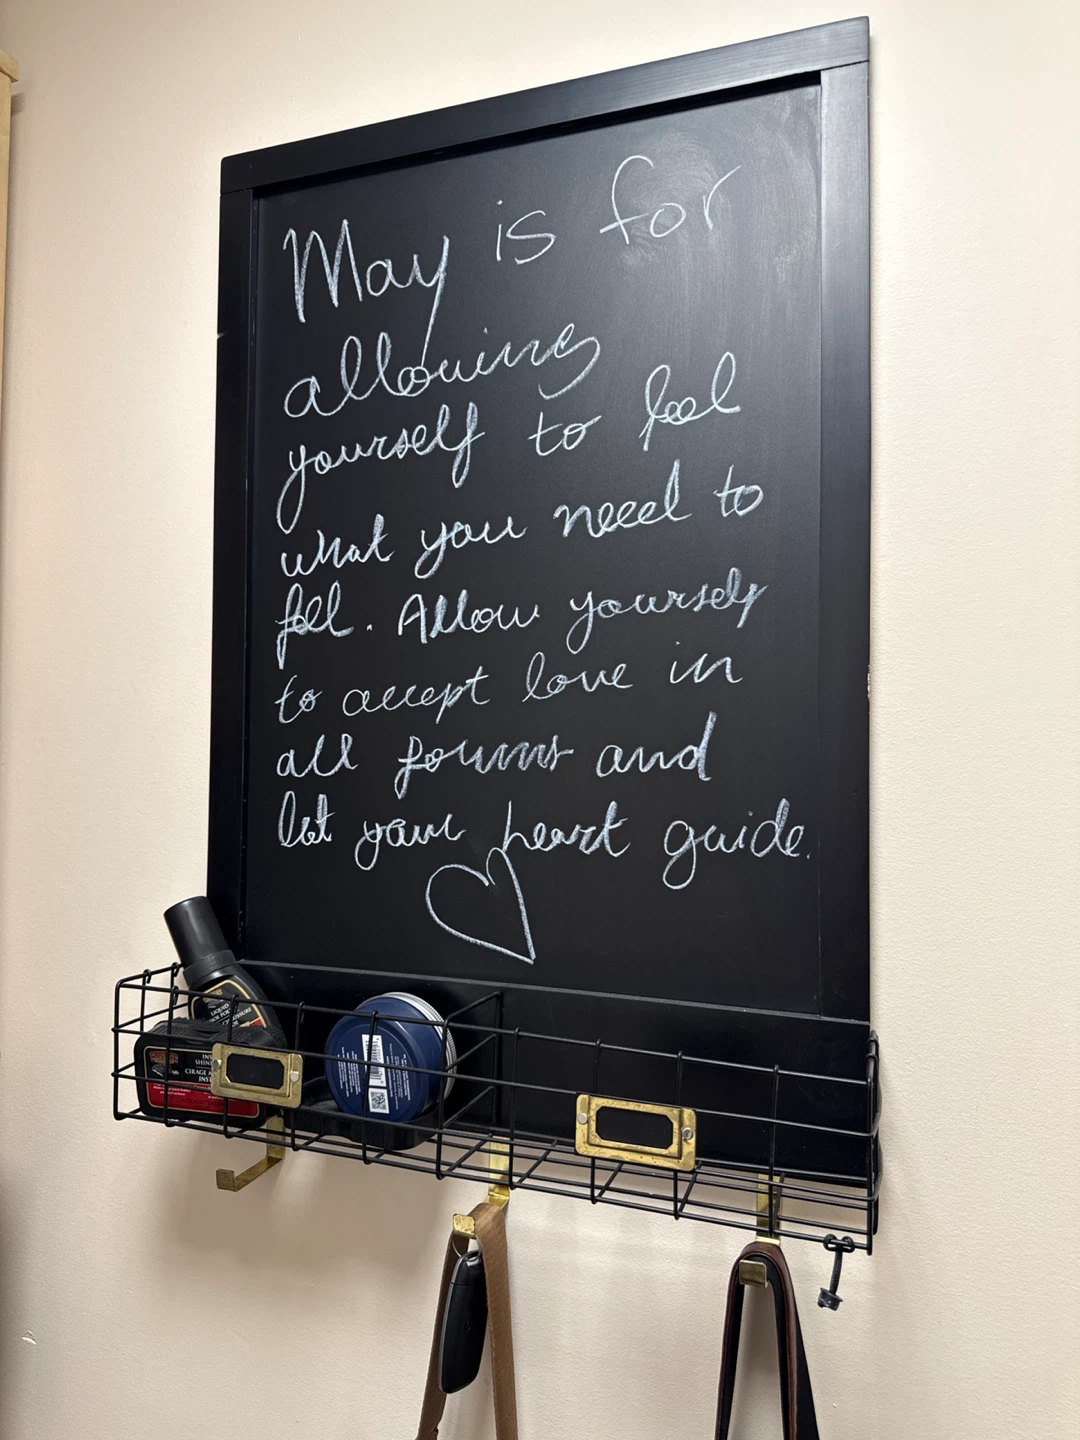 May is for
allowing
yourself to feel
what you need to
feel. Allow yourself
to accept love in
all forms and
let your heart guide.
LIQUID
CIRAGE